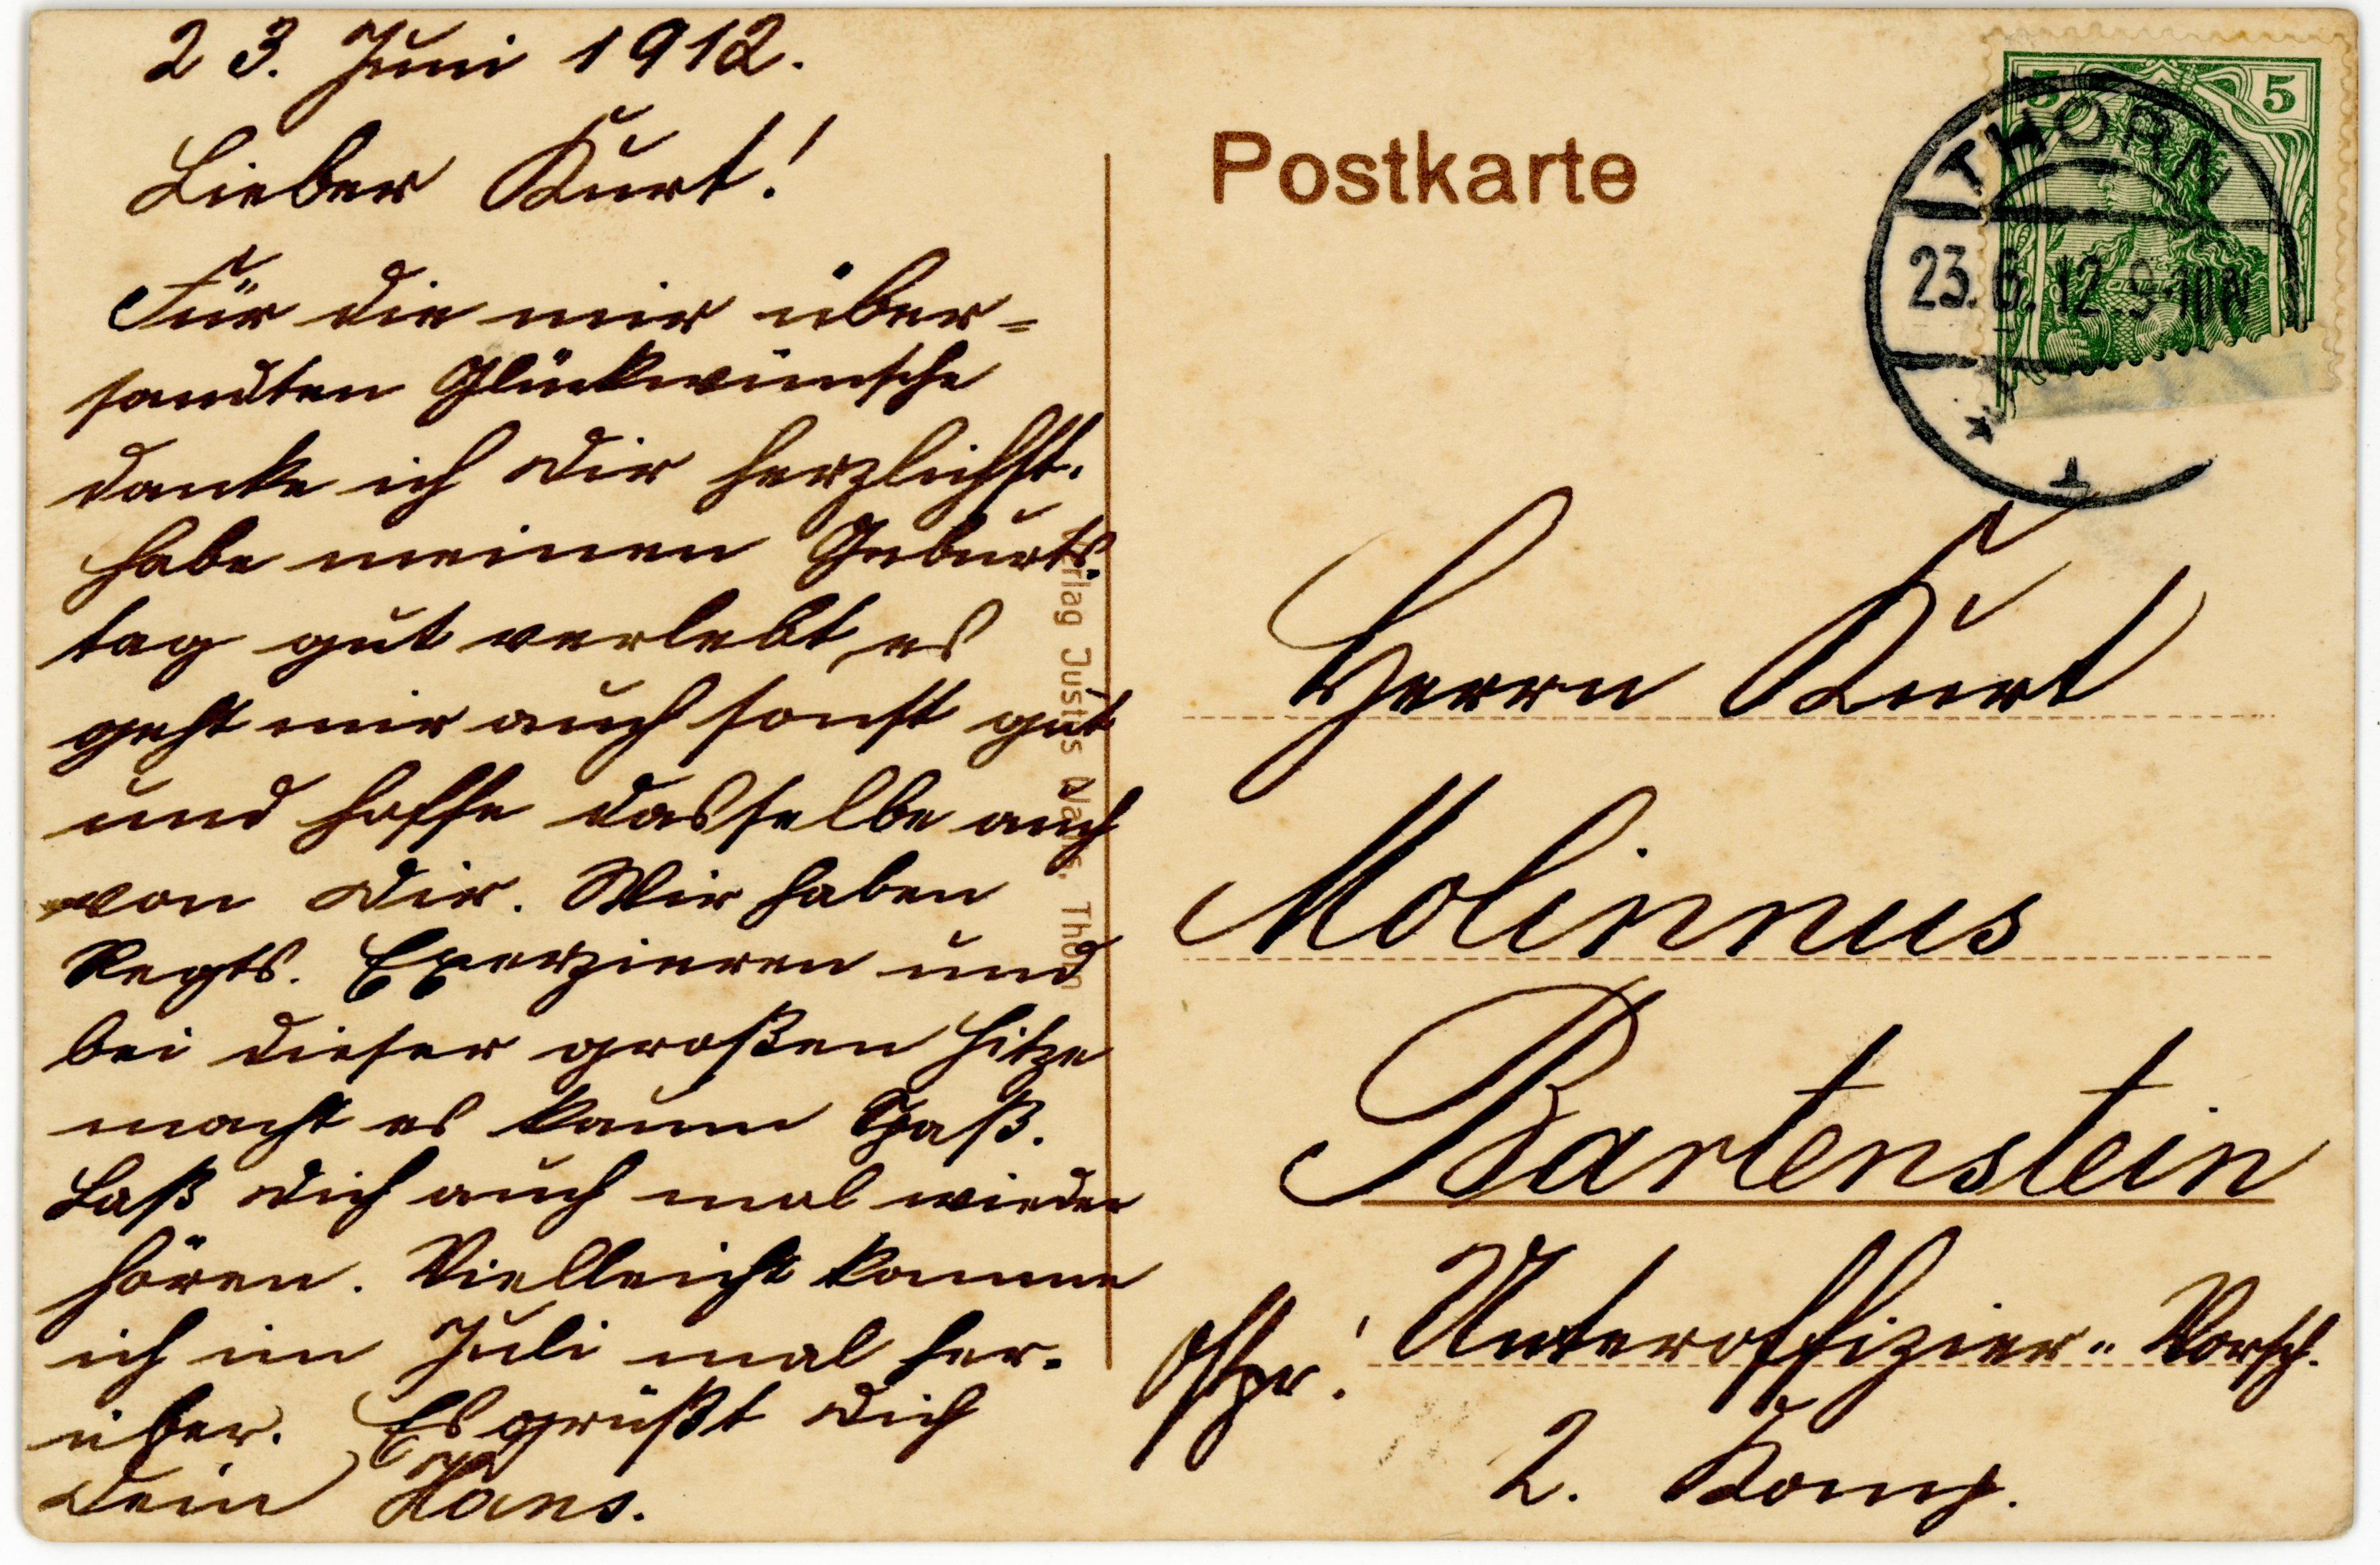 23. Juni 1912.
Lieber Kurt!
Für die mir über=
sandten Glückwünsche
danke ich Dir herzlichst.
habe meinen Geburts-
tag gut verlebt, es
geht mir auch sonst gut
und hoffe dasselbe auch
von Dir. Wir haben
Regts. Exerzieren und
bei dieser großen Hitze
macht es kaum Spaß.
Laß Dich auch mal wieder
hören. Vielleicht komme
ich im Juli mal her-
über. Es grüßt Dich
Dein Hans.
Verlag Justus Wallis, Thorn
Postkarte
5 5
THORN
23.6.12.9-10N
* 1
Herrn Kurt
Molinnus
Bartenstein
Ostpr! Unteroffizier-Vorsch.
2. Komp.